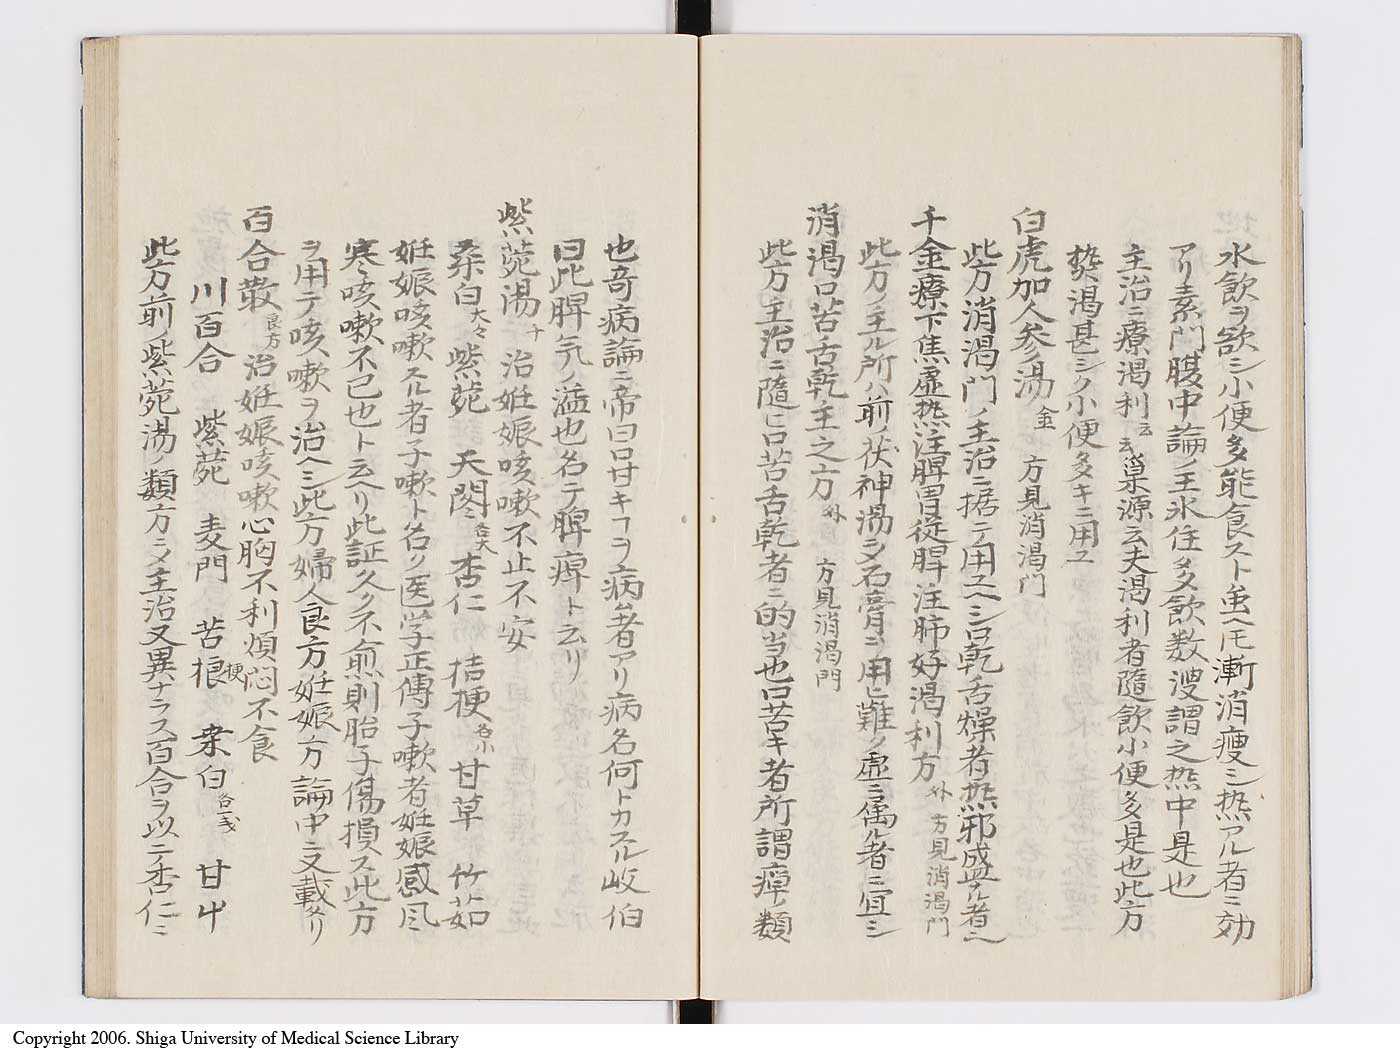 水飲ヲ欲シ小便多能食スト虽ヘ𪜈漸消瘦シ热アル者ニ効
アリ素門腹中論ノ王氷住ダ多飲数溲謂之热中是也
主治ニ療渴利云云巢源云夫渴利者隨飲小便多是也此方
煩渴甚シク小便多キニ用ユ
白虎加人参湯金 方見消渴門
此方消渴門ノ主治ニ据テ用ユヘシ口乾舌燥者热邪盛ナル者ニ
千金療下焦虛热注脾胃從脾注肺好渴利方外 方見消渴門
此方ノ主ル所ハ前ノ茯神湯ヨリ石膏ヲ用ヒ難ク虛ニ属ル者ニ宜シ
消渴口苦舌乾主之方外 方見消渴門
此方主治ニ隨ヒ口苦舌乾者ニ的当也口苦キ者所謂癉ノ類
也奇病論ニ帝曰口甘キヿヲ病ム者アリ病名何トカスル岐伯
曰此脾气ノ溢也名テ脾癉ト云リ
紫菀湯千 治妊娠咳嗽不止不安
桑白大々 紫菀 天門各大 杏仁 桔梗各小 甘草 竹茹
妊娠咳嗽スル者子嗽ト名ク医学正傳子嗽者妊娠感风
寒咳嗽不已也ト云ヘリ此証久ク不愈則胎子傷損ス此方
ヲ用テ咳嗽ヲ治ヘシ此方婦人良方妊娠方論中ニ又載タリ
百合散良方 治妊娠咳嗽心胸不利煩悶不食
川百合 紫菀 麦門 苦梗 桑白各一戋 甘屮
此方前ノ紫菀湯ノ類方ニメ主治又異ナラス百合ヲ以ニ杏仁ニ
Copyright 2006. Shiga University of Medical Science Library